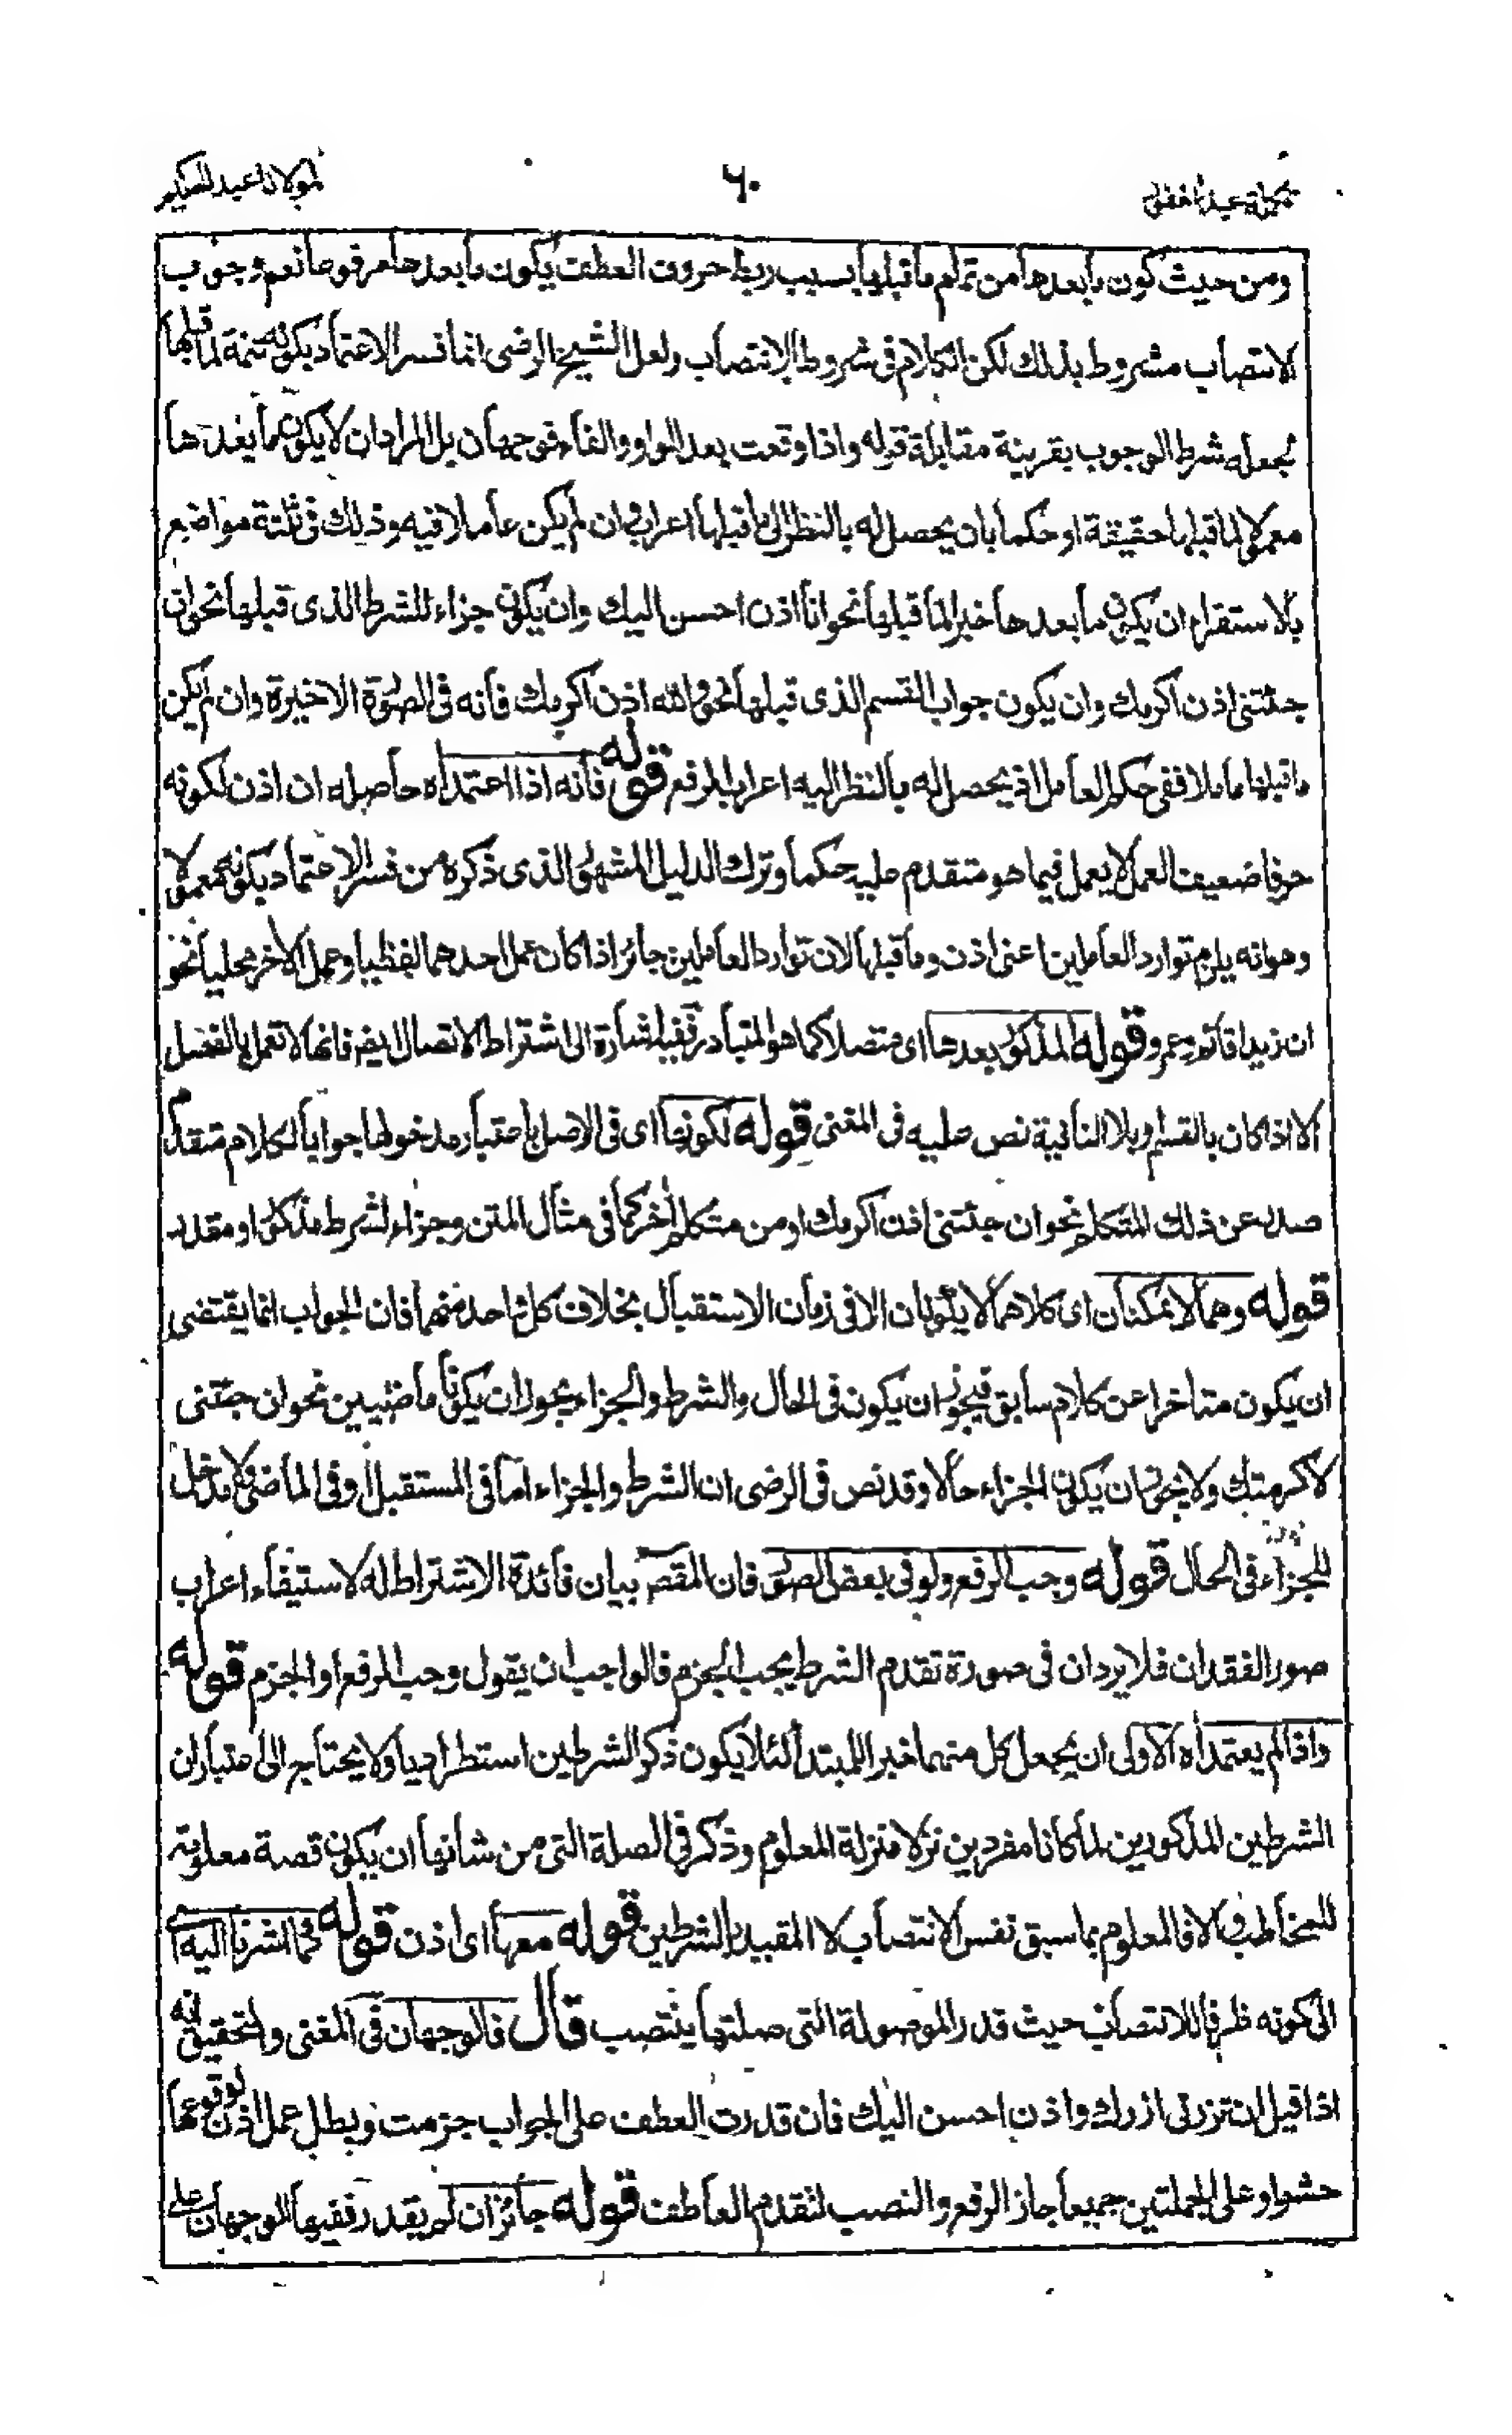 تكملة عبد الغفور ٦٠ لمولانا عبد الحكيم
ومن حيث كون ما بعدها من تمام ما قبلها بسبب ربط حروف العطف يكون ما بعدها مرفوعا نعم وجوب
الانتصاب مشروط بذلك لكن الكلام فى شروط الانتصاب ولعل الشيخ الرضى انما فسر الاعتماد بكونه تتمة لما قبلها
لجعله شرط الوجوب بقرينة مقابلة قوله واذا وقعت بعد الواو والفاء فوجهان بل المراد ان لا يكون ما بعدها
معمولا لما قبلها حقيقة او حكما بان يحصل له بالنظر الى ما قبلها اعراب وان لم يكن عاملا فيه وذلك فى ثلثة مواضع
بالاستقراء ان يكون ما بعدها خبرا لما قبلها نحو انا اذن احسن اليك وان يكون جزاء للشرط الذى قبلها نحو ان
جئتنى اذن اكرمك وان يكون جواب القسم الذى قبلها نحو والله اذن اكرمك فانه فى الصورة الاخيرة وان لم يكن
ما قبلها عاملا ففى حكم العامل اذ يحصل له بالنظر اليه اعراب الرفع قوله فانه اذا اعتمد اه حاصله ان اذن لكونه
حرفا ضعيف العمل لا يعمل فيما هو متقدم عليه حكما وترك الدليل المشهور الذى ذكره من فسر الاعتماد بكونه معمولا
وهو انه يلزم توارد العاملين اعنى اذن وما قبلها لان توارد العاملين جائز اذا كان عمل احدهما لفظيا وعمل الآخر محليا نحو
ان زيدا قائم وعمرو قوله المذكور بعدها اى متصلا كما هو المتبادر ففيه اشارة الى اشتراط الاتصال ايضا فانها لا تعمل بالفصل
الا اذا كان بالقسم وبلا النافية نص عليه فى المغنى قوله لكونها اى فى الاصل باعتبار مدخولها جوابا لكلام متقدم
صدر عن ذلك المتكلم نحو ان جئتنى اذن اكرمك او من متكلم آخر كما فى مثال المتن وجزاء لشرط مذكور او مقدر
قوله وهما لا يمكنان اى كلاهما لا يكونان الا فى زمان الاستقبال بخلاف كل واحد منهما فان الجواب انما يقتضى
ان يكون متأخرا عن كلام سابق فيجوز ان يكون فى الحال والشرط والجزاء يجوز ان يكونا ماضيين نحو ان جئتنى
لاكرمتك ولا يجوز ان يكون الجزاء حالا وقد نص فى الرضى ان الشرط والجزاء اما فى المستقبل او فى الماضى ولا مدخل
للجزاء فى الحال قوله وجب الرفع ولو فى بعض الصور فان المقص بيان فائدة الاشتراط له لا ستيفاء اعراب
صور الفقدان فلا يرد ان فى صورة تقدم الشرط يجب الجزم فالواجب ان يقول وجب الرفع او الجزم قوله
واذا لم يعتمد اه الاولى ان يجعل كل منهما خبرا للمبتدأ لئلا يكون ذكر الشرطين استطراديا ولا يحتاج الى اعتبار ان
الشرطين المذكورين لما كانا مفردين نزلا منزلة المعلوم وذكر فى الصلة التى من شانها ان يكون قصة معلومة
للمخاطب والا فالمعلوم بما سبق نفس الانتصاب لا المقيد بالشرطين قوله معها اى اذن قوله فما اشرنا اليه اى
الى كونه ظرفا للانتصاب حيث قدر الموصولة التى صلتها ينتصب قال فالوجهان فى المغنى والتحقيق انه
اذا قيل ان تزرنى ازرك واذن احسن اليك فان قدرت العطف على الجواب جزمت وبطل عمل اذن لوقوعها
حشوا وعلى الجملتين جميعا جاز الرفع والنصب لتقدم العاطف قوله جائزان لم يقدر ففيها الوجهان على